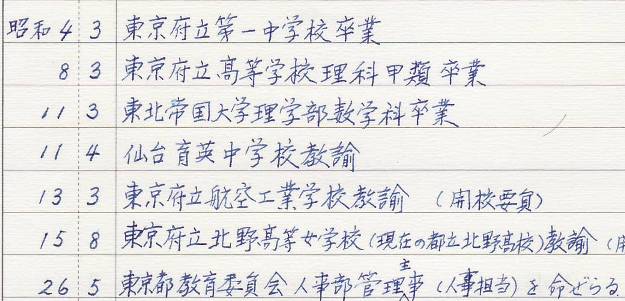 昭和 4 3 東京府立第一中学校卒業
8 3 東京府立高等学校理科甲類卒業
11 3 東北帝国大学理学部数学科卒業
11 4 仙台育英中学校教諭
13 3 東京府立航空工業学校教諭 (開校要員)
15 8 東京府立北野高等女学校(現在の都立北野高校)教諭 (開
26 5 東京都教育委員会人事部管理主事 (人事担当)を命ぜらる